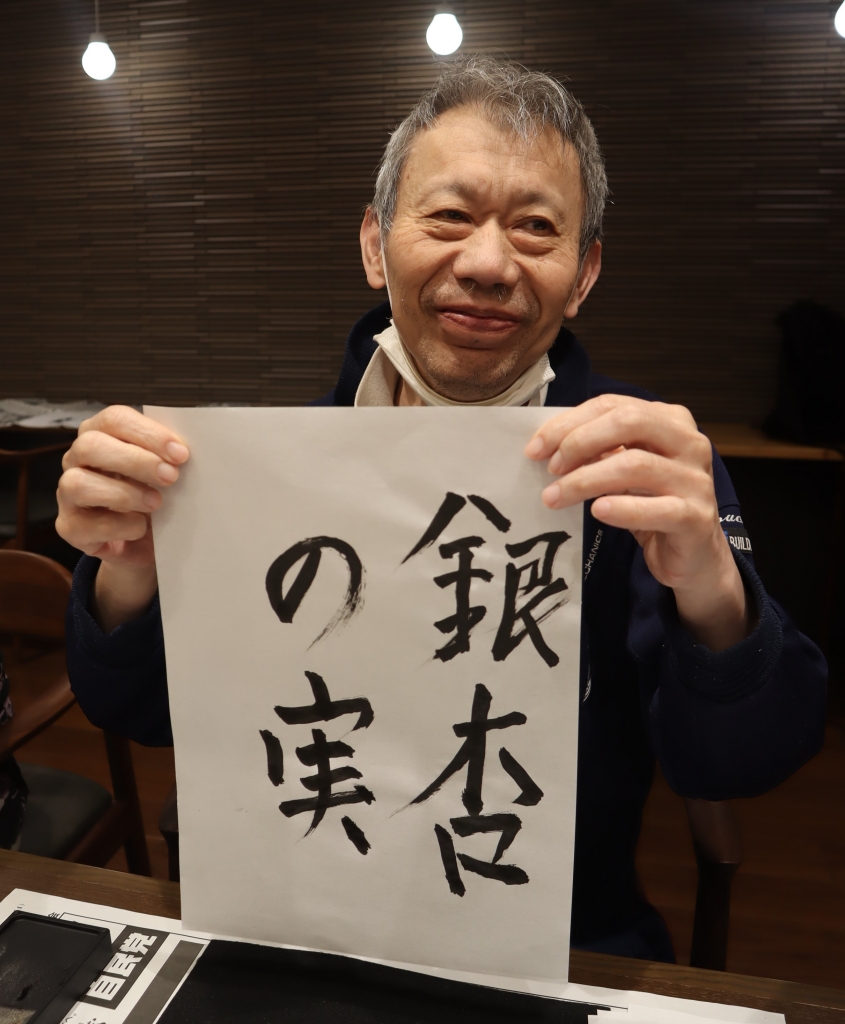 銀杏
の実
自民党
BUILD